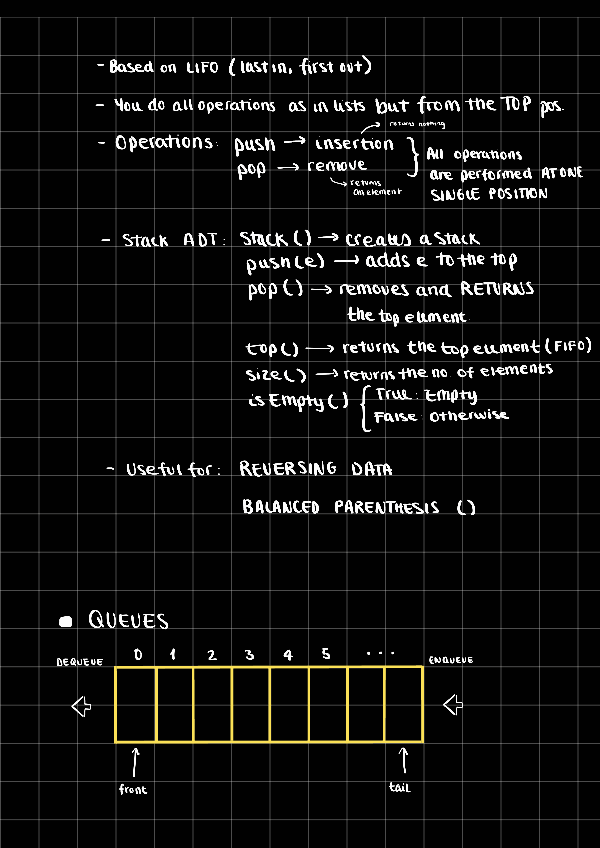 - Based on LIFO (last in, first out)
- You do all operations as in lists but from the TOP pos.
- Operations: push → insertion
returns nothing
pop → remove
returns
an element
All operations
are performed AT ONE
SINGLE POSITION
- Stack ADT: Stack() → creates a stack
push(e) → adds e to the top
pop() → removes and RETURNS
the top element
top() → returns the top element (FIFO)
size() → returns the no. of elements
isEmpty() { True: Empty
False: Otherwise
- Useful for: REVERSING DATA
BALANCED PARENTHESIS ()
QUEUES
DEQUEUE 0 1 2 3 4 5 ... ENQUEUE
front tail